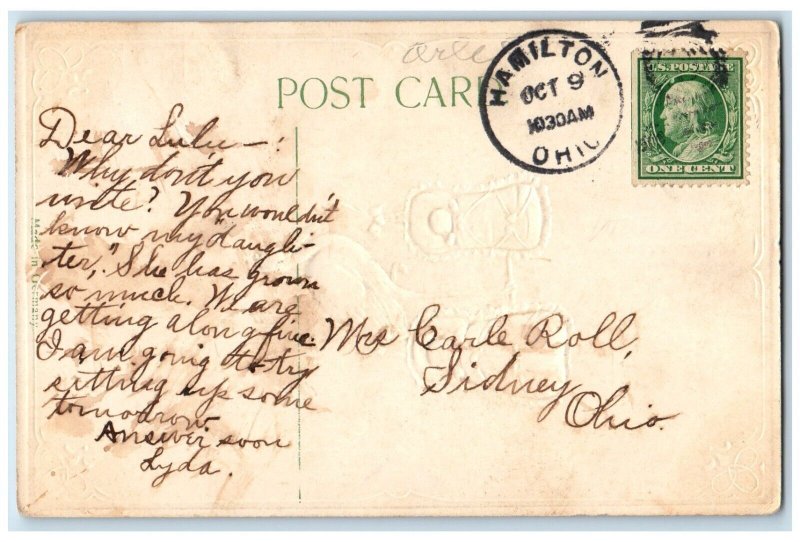 POST CARD
HAMILTON
OCT 9
1030AM
OHIO
U.S. POSTAGE
ONE CENT
Dear Lulu—:
Why don't you
write? You wouldn't
know my "daugh-
ter," She has grown
so much. We are
getting along fine.
I am going to try
sitting up some
tomorrow.
Answer soon
Lyda.
Mrs Carle Roll,
Sidney
Ohio.
Made in Germany